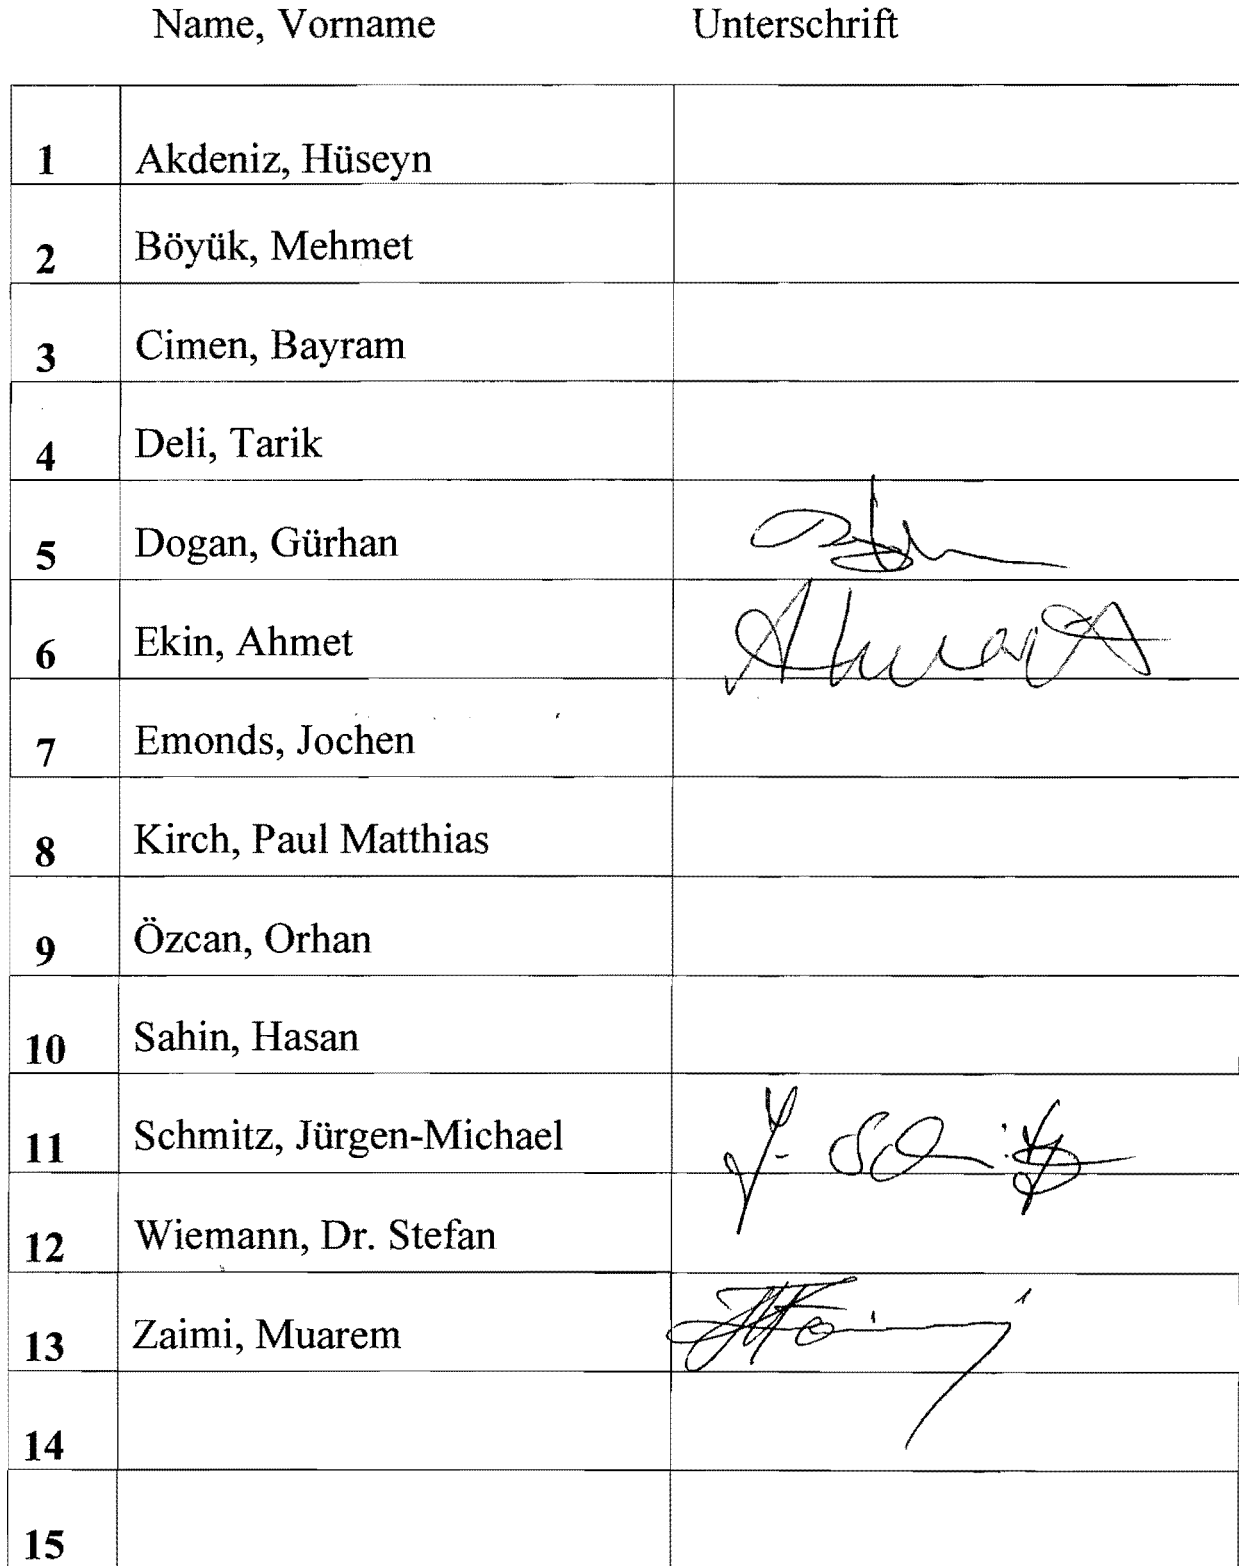 Name, Vorname Unterschrift
1 Akdeniz, Hüseyn
2 Böyük, Mehmet
3 Cimen, Bayram
4 Deli, Tarik
5 Dogan, Gürhan
6 Ekin, Ahmet Ahmet
7 Emonds, Jochen
8 Kirch, Paul Matthias
9 Özcan, Orhan
10 Sahin, Hasan
11 Schmitz, Jürgen-Michael J. Schmitz
12 Wiemann, Dr. Stefan
13 Zaimi, Muarem
14
15